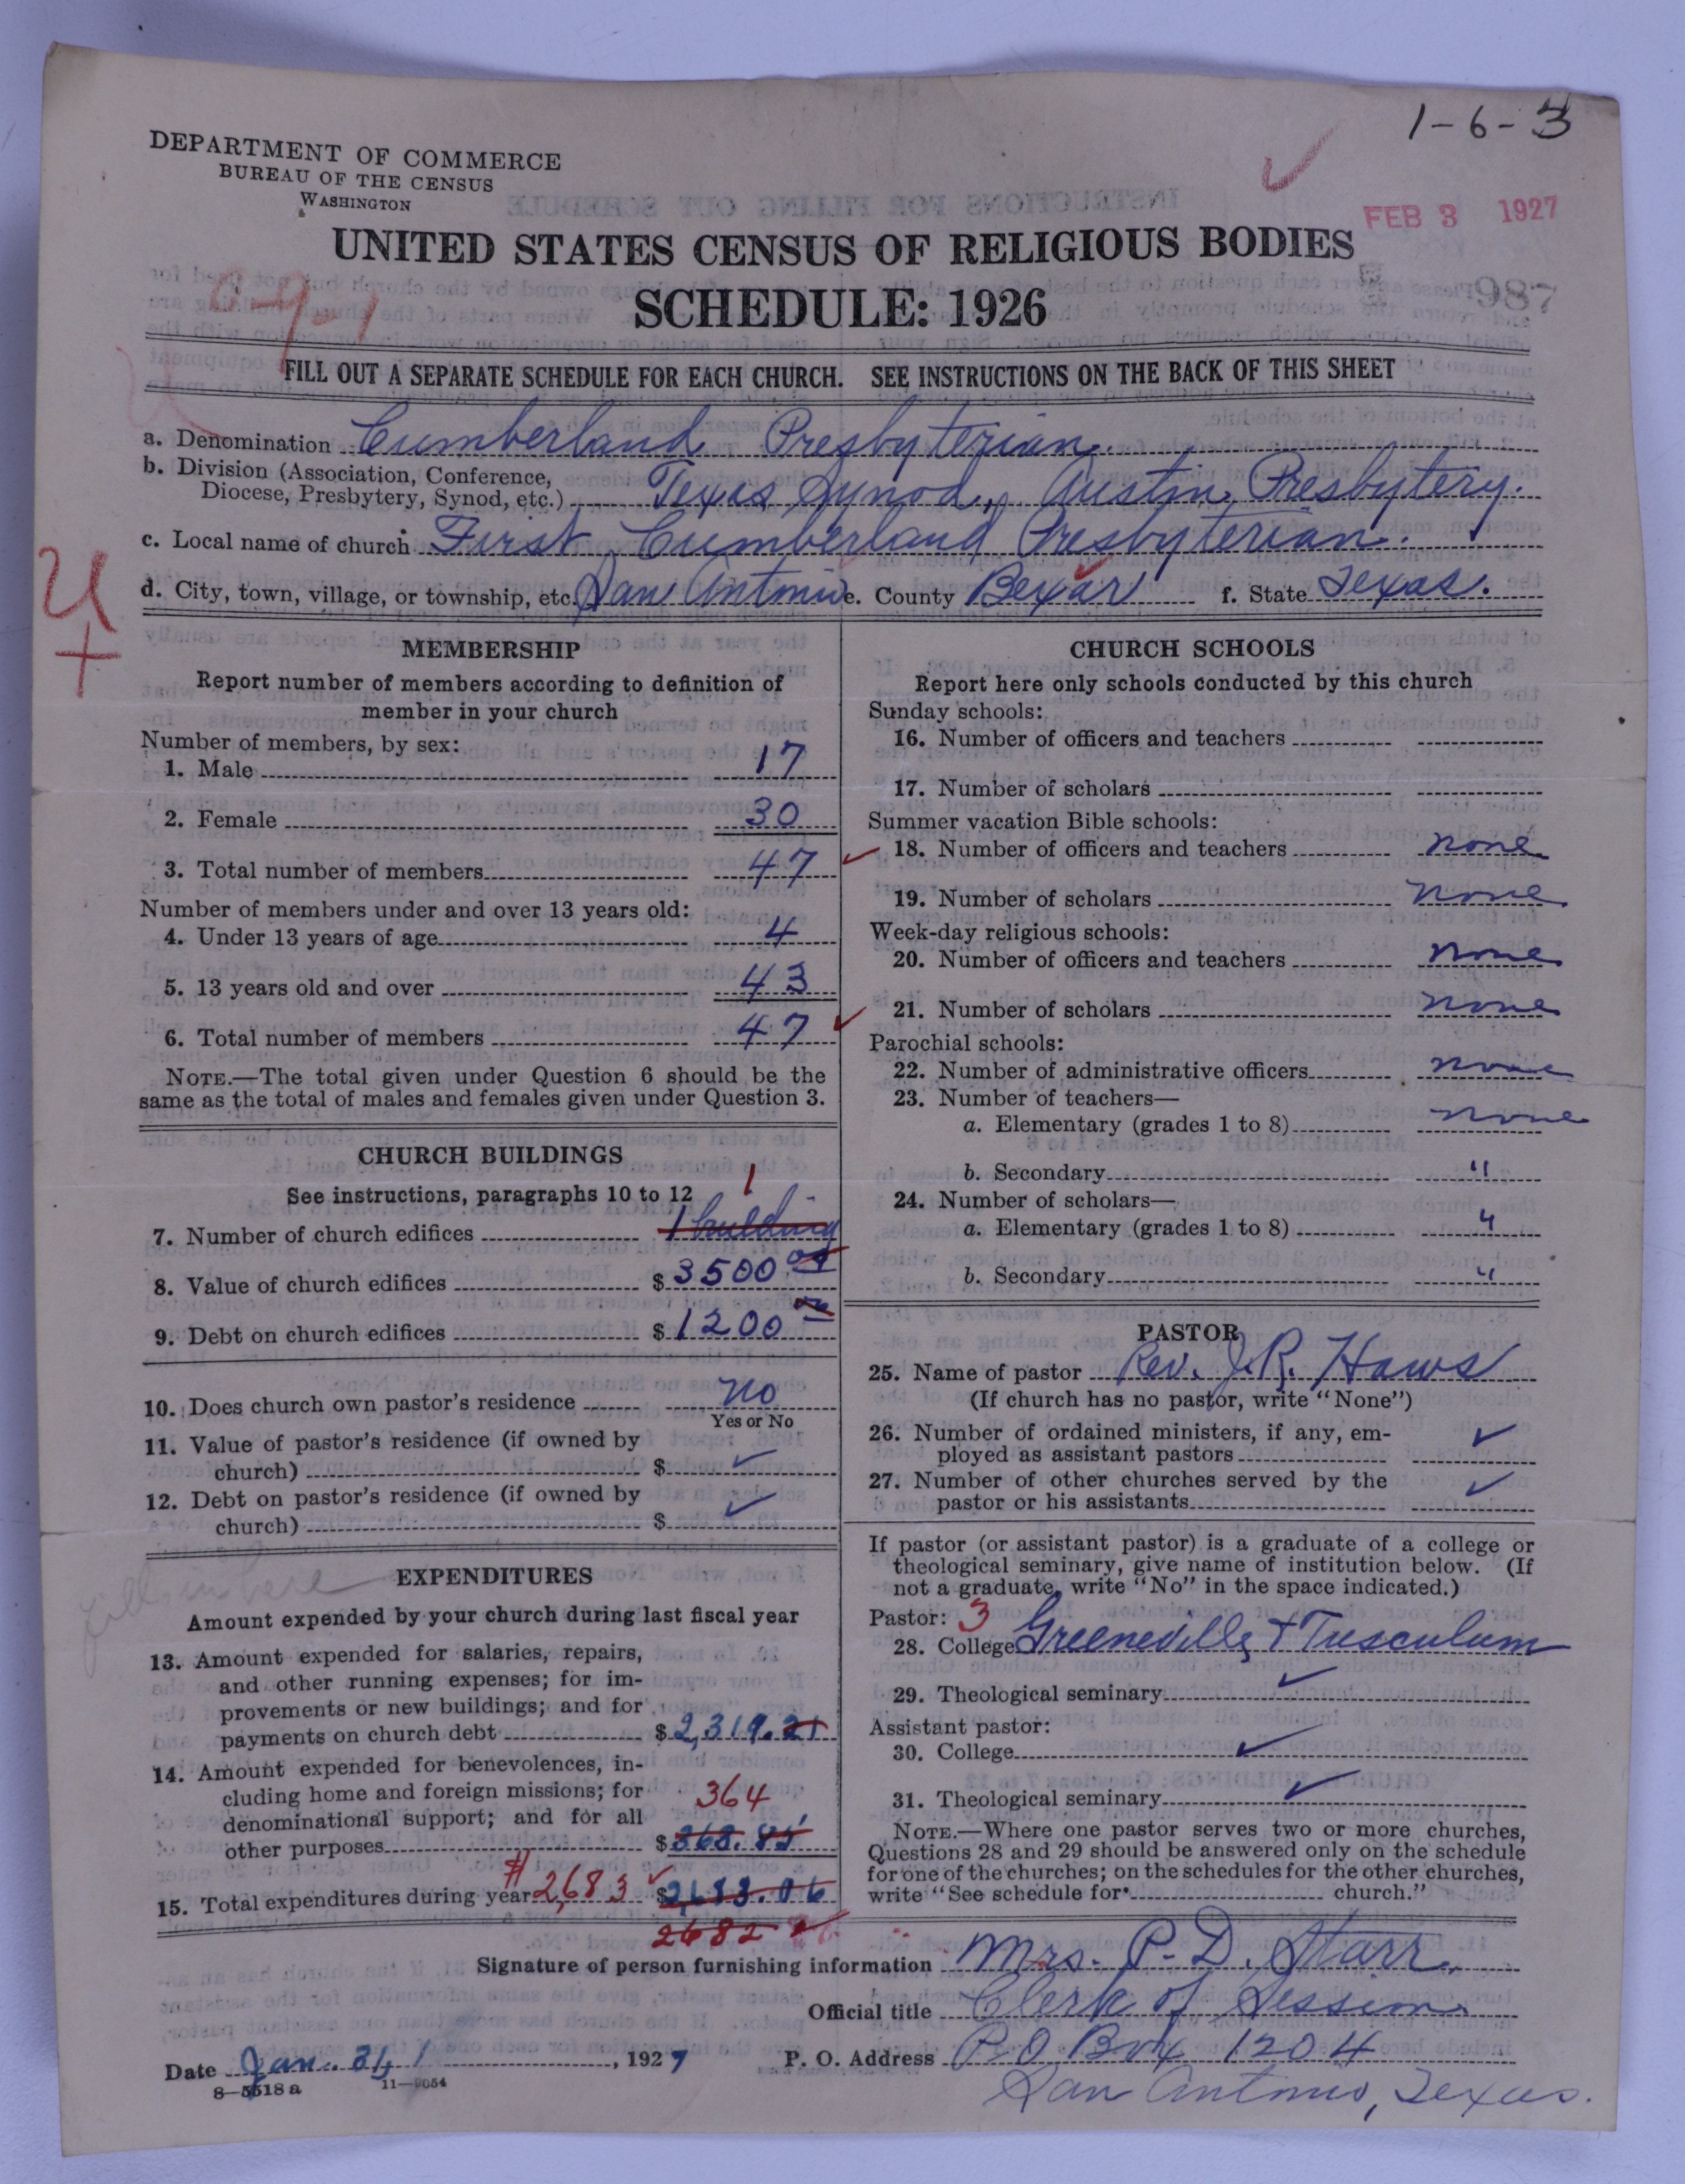 1-6-3
DEPARTMENT OF COMMERCE
BUREAU OF THE CENSUS
WASHINGTON
FEB 3 1927
UNITED STATES CENSUS OF RELIGIOUS BODIES
987
SCHEDULE: 1926
FILL OUT A SEPARATE SCHEDULE FOR EACH CHURCH. SEE INSTRUCTIONS ON THE BACK OF THIS SHEET
a. Denomination Cumberland Presbyterian.
b. Division (Association, Conference,
Diocese, Presbytery, Synod, etc.) Texas Synod, Austin, Presbytery.
c. Local name of church First Cumberland Presbyterian.
d. City, town, village, or township, etc. San Antonio e. County Bexar f. State Texas.
U
+
MEMBERSHIP
Report number of members according to definition of
member in your church
Number of members, by sex:
1. Male 17
2. Female 30
3. Total number of members 47
Number of members under and over 13 years old:
4. Under 13 years of age 4
5. 13 years old and over 43
6. Total number of members 47
NOTE.—The total given under Question 6 should be the
same as the total of males and females given under Question 3.
CHURCH BUILDINGS
See instructions, paragraphs 10 to 12 1
7. Number of church edifices 1 building
8. Value of church edifices $ 3500 00
9. Debt on church edifices $ 1200
10. Does church own pastor's residence No
Yes or No
11. Value of pastor's residence (if owned by
church) $ ✓
12. Debt on pastor's residence (if owned by
church) $ ✓
EXPENDITURES
Amount expended by your church during last fiscal year
13. Amount expended for salaries, repairs,
and other running expenses; for im-
provements or new buildings; and for
payments on church debt $ 2,319.21
14. Amount expended for benevolences, in-
cluding home and foreign missions; for 364
denominational support; and for all
other purposes $ 363.85
15. Total expenditures during year $2,683 ✓ $ 2,683.06
2682
CHURCH SCHOOLS
Report here only schools conducted by this church
Sunday schools:
16. Number of officers and teachers
17. Number of scholars
Summer vacation Bible schools:
18. Number of officers and teachers none
19. Number of scholars none
Week-day religious schools:
20. Number of officers and teachers none
21. Number of scholars none
Parochial schools:
22. Number of administrative officers none
23. Number of teachers—
a. Elementary (grades 1 to 8) none
b. Secondary "
24. Number of scholars—
a. Elementary (grades 1 to 8) "
b. Secondary "
PASTOR
25. Name of pastor Rev. J. R. Haws
(If church has no pastor, write "None")
26. Number of ordained ministers, if any, em-
ployed as assistant pastors ✓
27. Number of other churches served by the
pastor or his assistants ✓
If pastor (or assistant pastor) is a graduate of a college or
theological seminary, give name of institution below. (If
not a graduate, write "No" in the space indicated.)
Pastor: 3
28. College Greeneville & Tusculum
29. Theological seminary ✓
Assistant pastor:
30. College ✓
31. Theological seminary ✓
NOTE.—Where one pastor serves two or more churches,
Questions 28 and 29 should be answered only on the schedule
for one of the churches; on the schedules for the other churches,
write "See schedule for church."
Signature of person furnishing information Mrs. P. D. Starr.
Official title Clerk of Session
Date Jan. 31, 1927 P. O. Address P.O Box 1204
San Antonio, Texas.
8—5518 a 11—9054